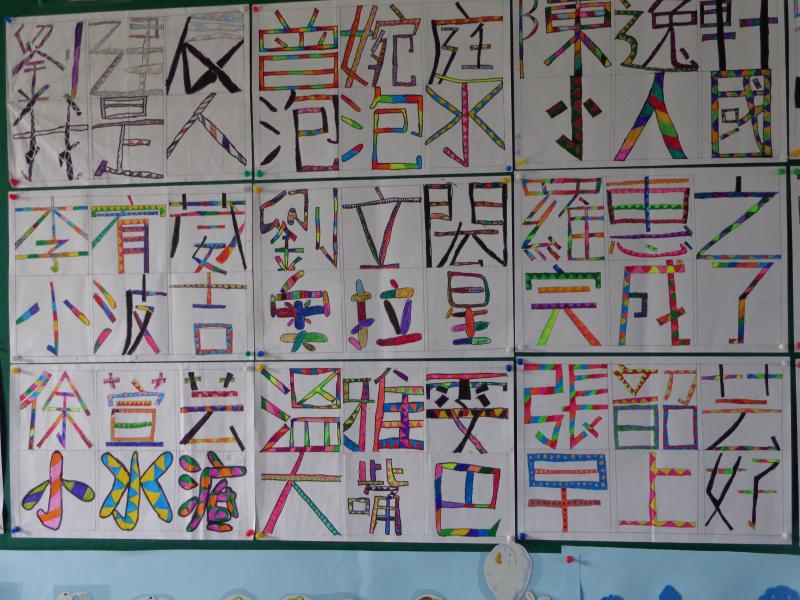 劉
是人
曾婉庭
泡泡水
陳逸軒
小人國
李宥葳
小波吉
劉立閎
奧拉星
羅惠之
完成了
徐萱芸
小水滴
溫雅雯
大嘴巴
張韶芸
早上好